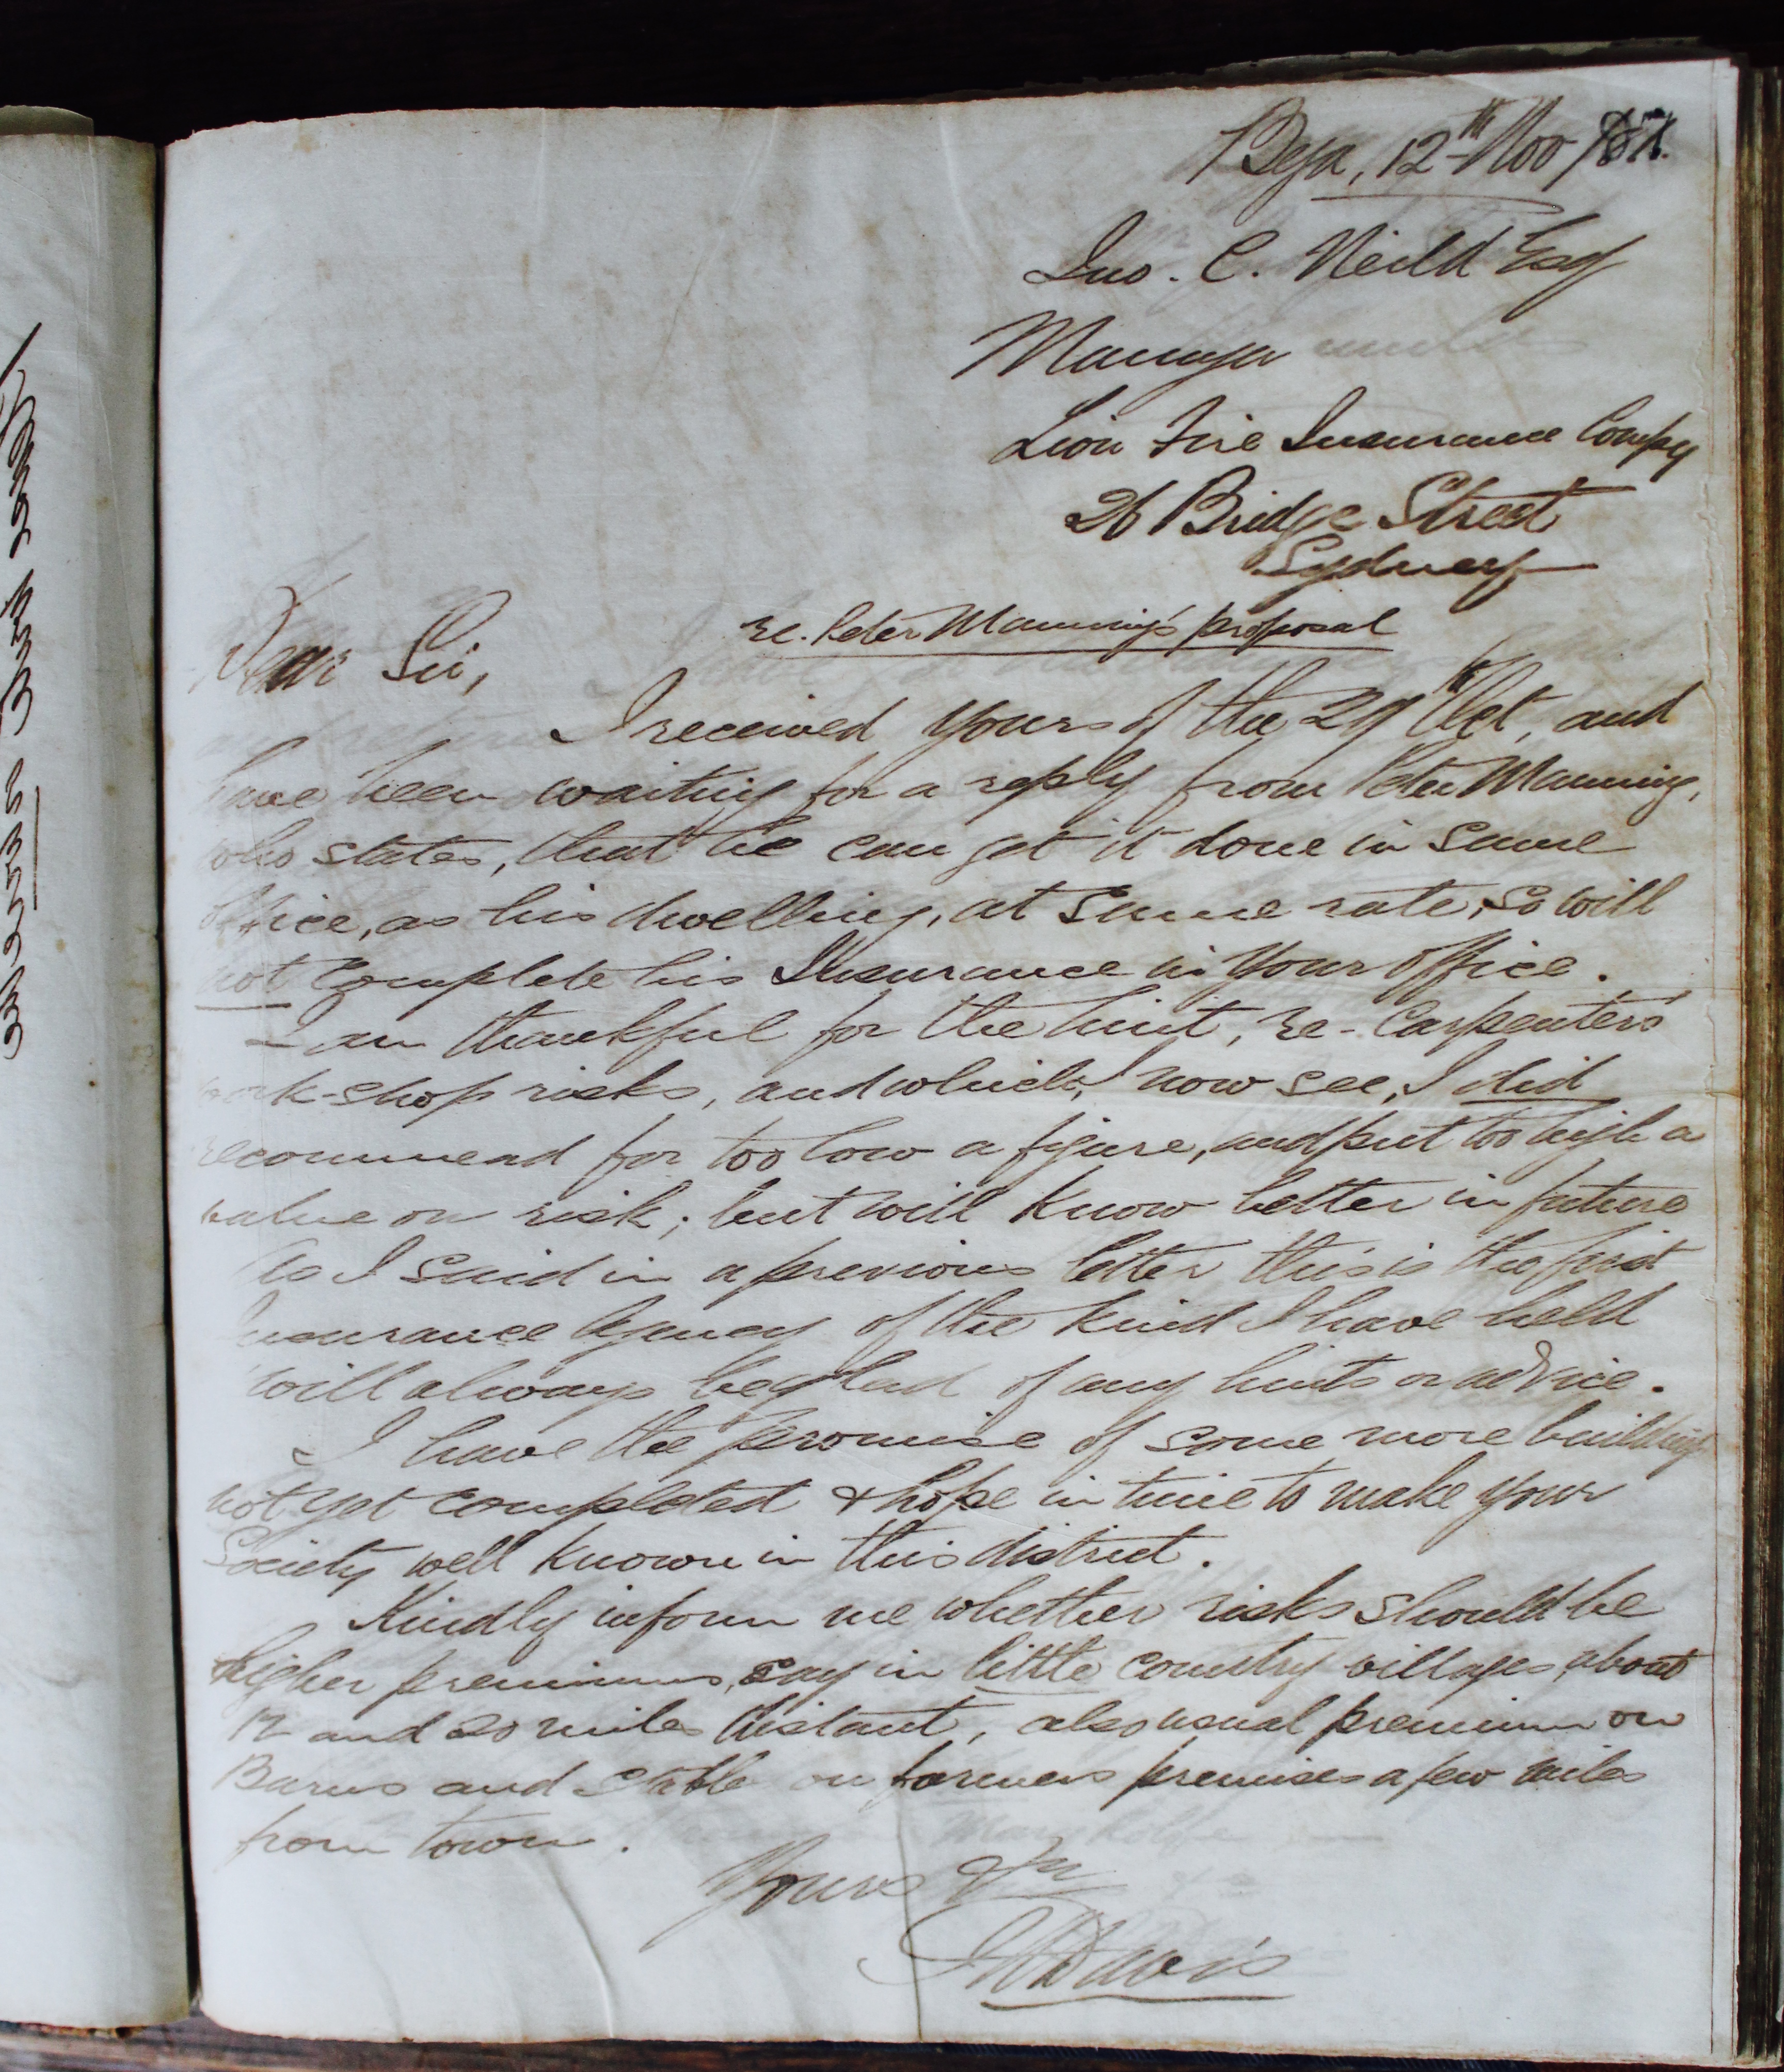 Bega, 12th Nov
Jno. C. Neild Esq
Manager
Lion Fire Insurance Compy
26 Bridge Street
Sydney
re. Peter Manning's proposal
Dear Sir,
I received yours of the 29th Oct, and
have been waiting for a reply from Peter Manning,
who states, that he can get it done in same
office, as his dwelling, at same rate, so will
not complete his Insurance in your office.
I am thankful for the hint, re-Carpenters'
work-shop risks, and which, I now see, I did
recommend for too low a figure, and put too high a
value on risk; but will know better in future
As I said in a previous letter this is the first
Insurance Agency of the kind I have held
will always be glad of any hints or advice.
I have the promise of some more buildings
not yet completed & hope in time to make your
Society well known in this district.
Kindly inform me whether risks should be
higher premiums, say in little country villages, about
12 and 20 miles distant, also usual premium on
Barns and stable on farmers premises a few miles
from town.
Yours &c
Davis